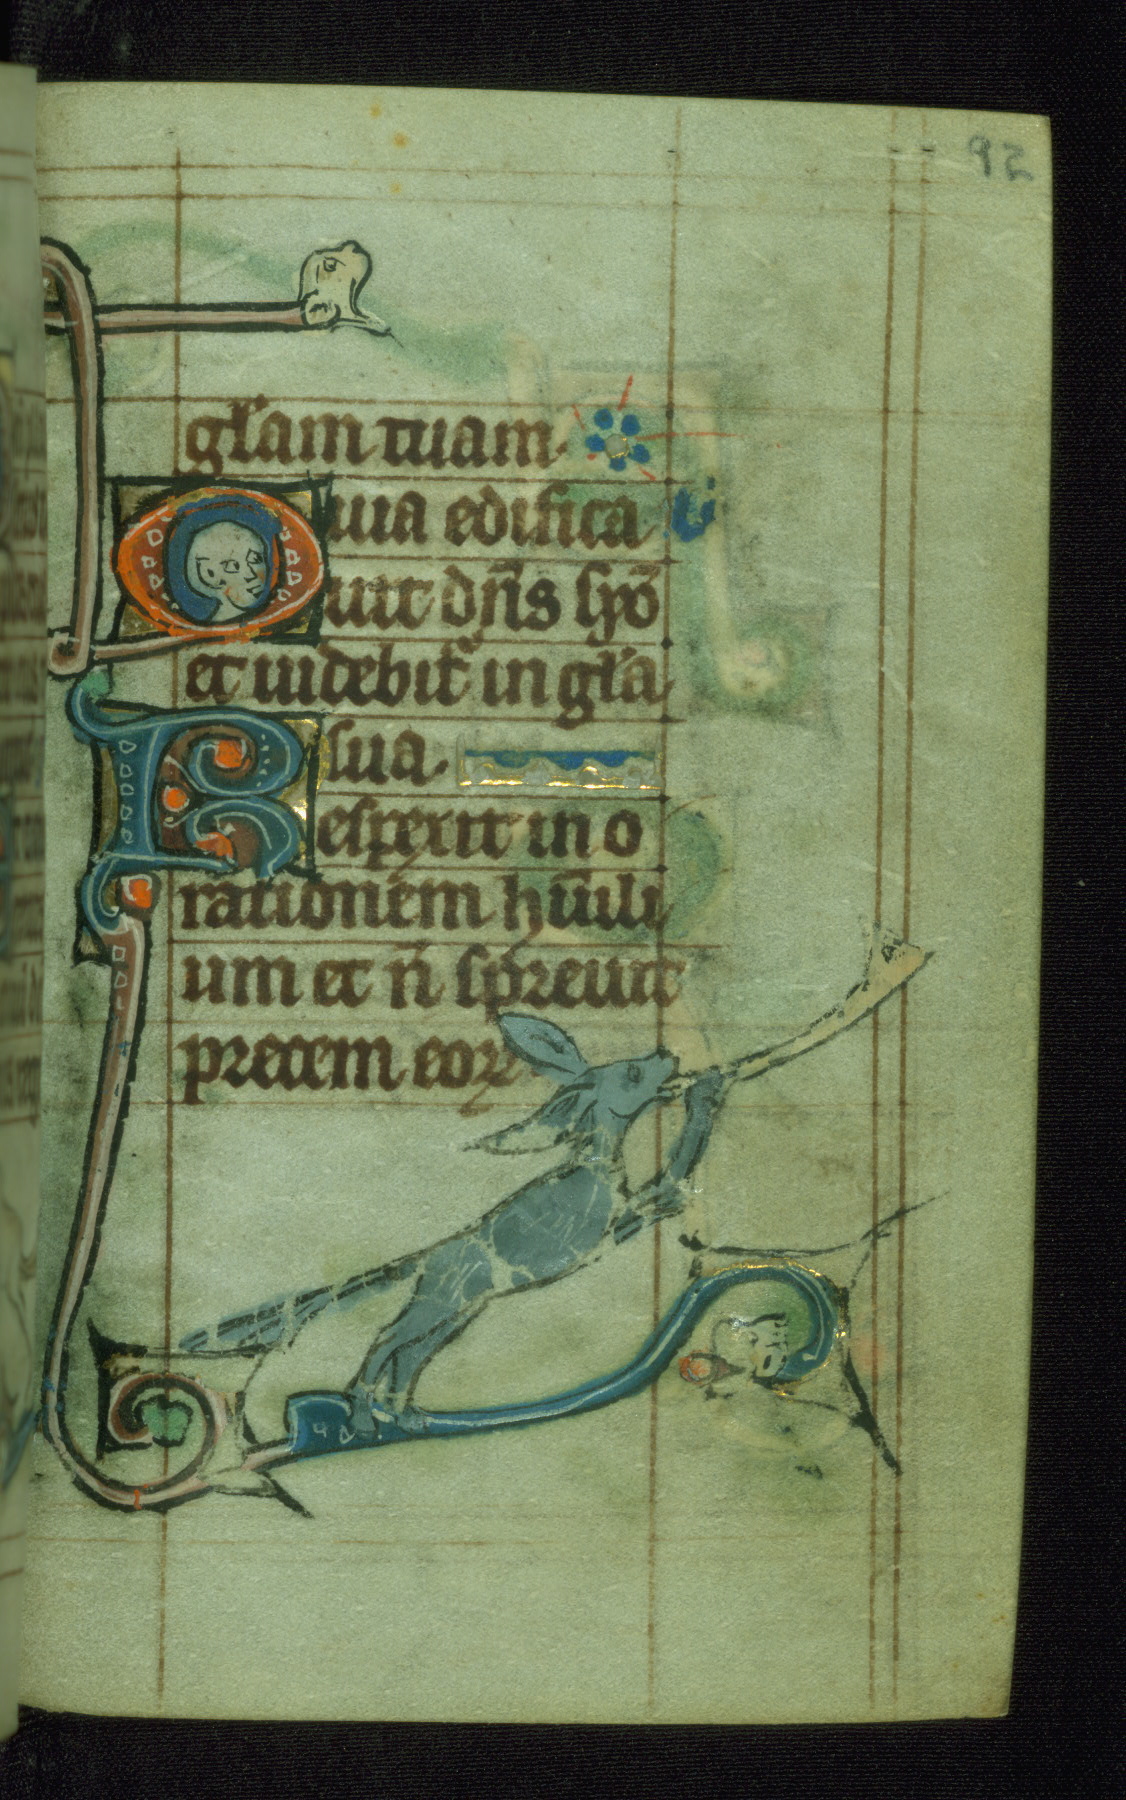 92
gl̄am tuam.
Quia edifica
uit dn̄s syō
et uidebit᷑ in gl̄a
sua.
Respexit in o
rationem hūili
um et n̄ spreuit
precem eoꝝ